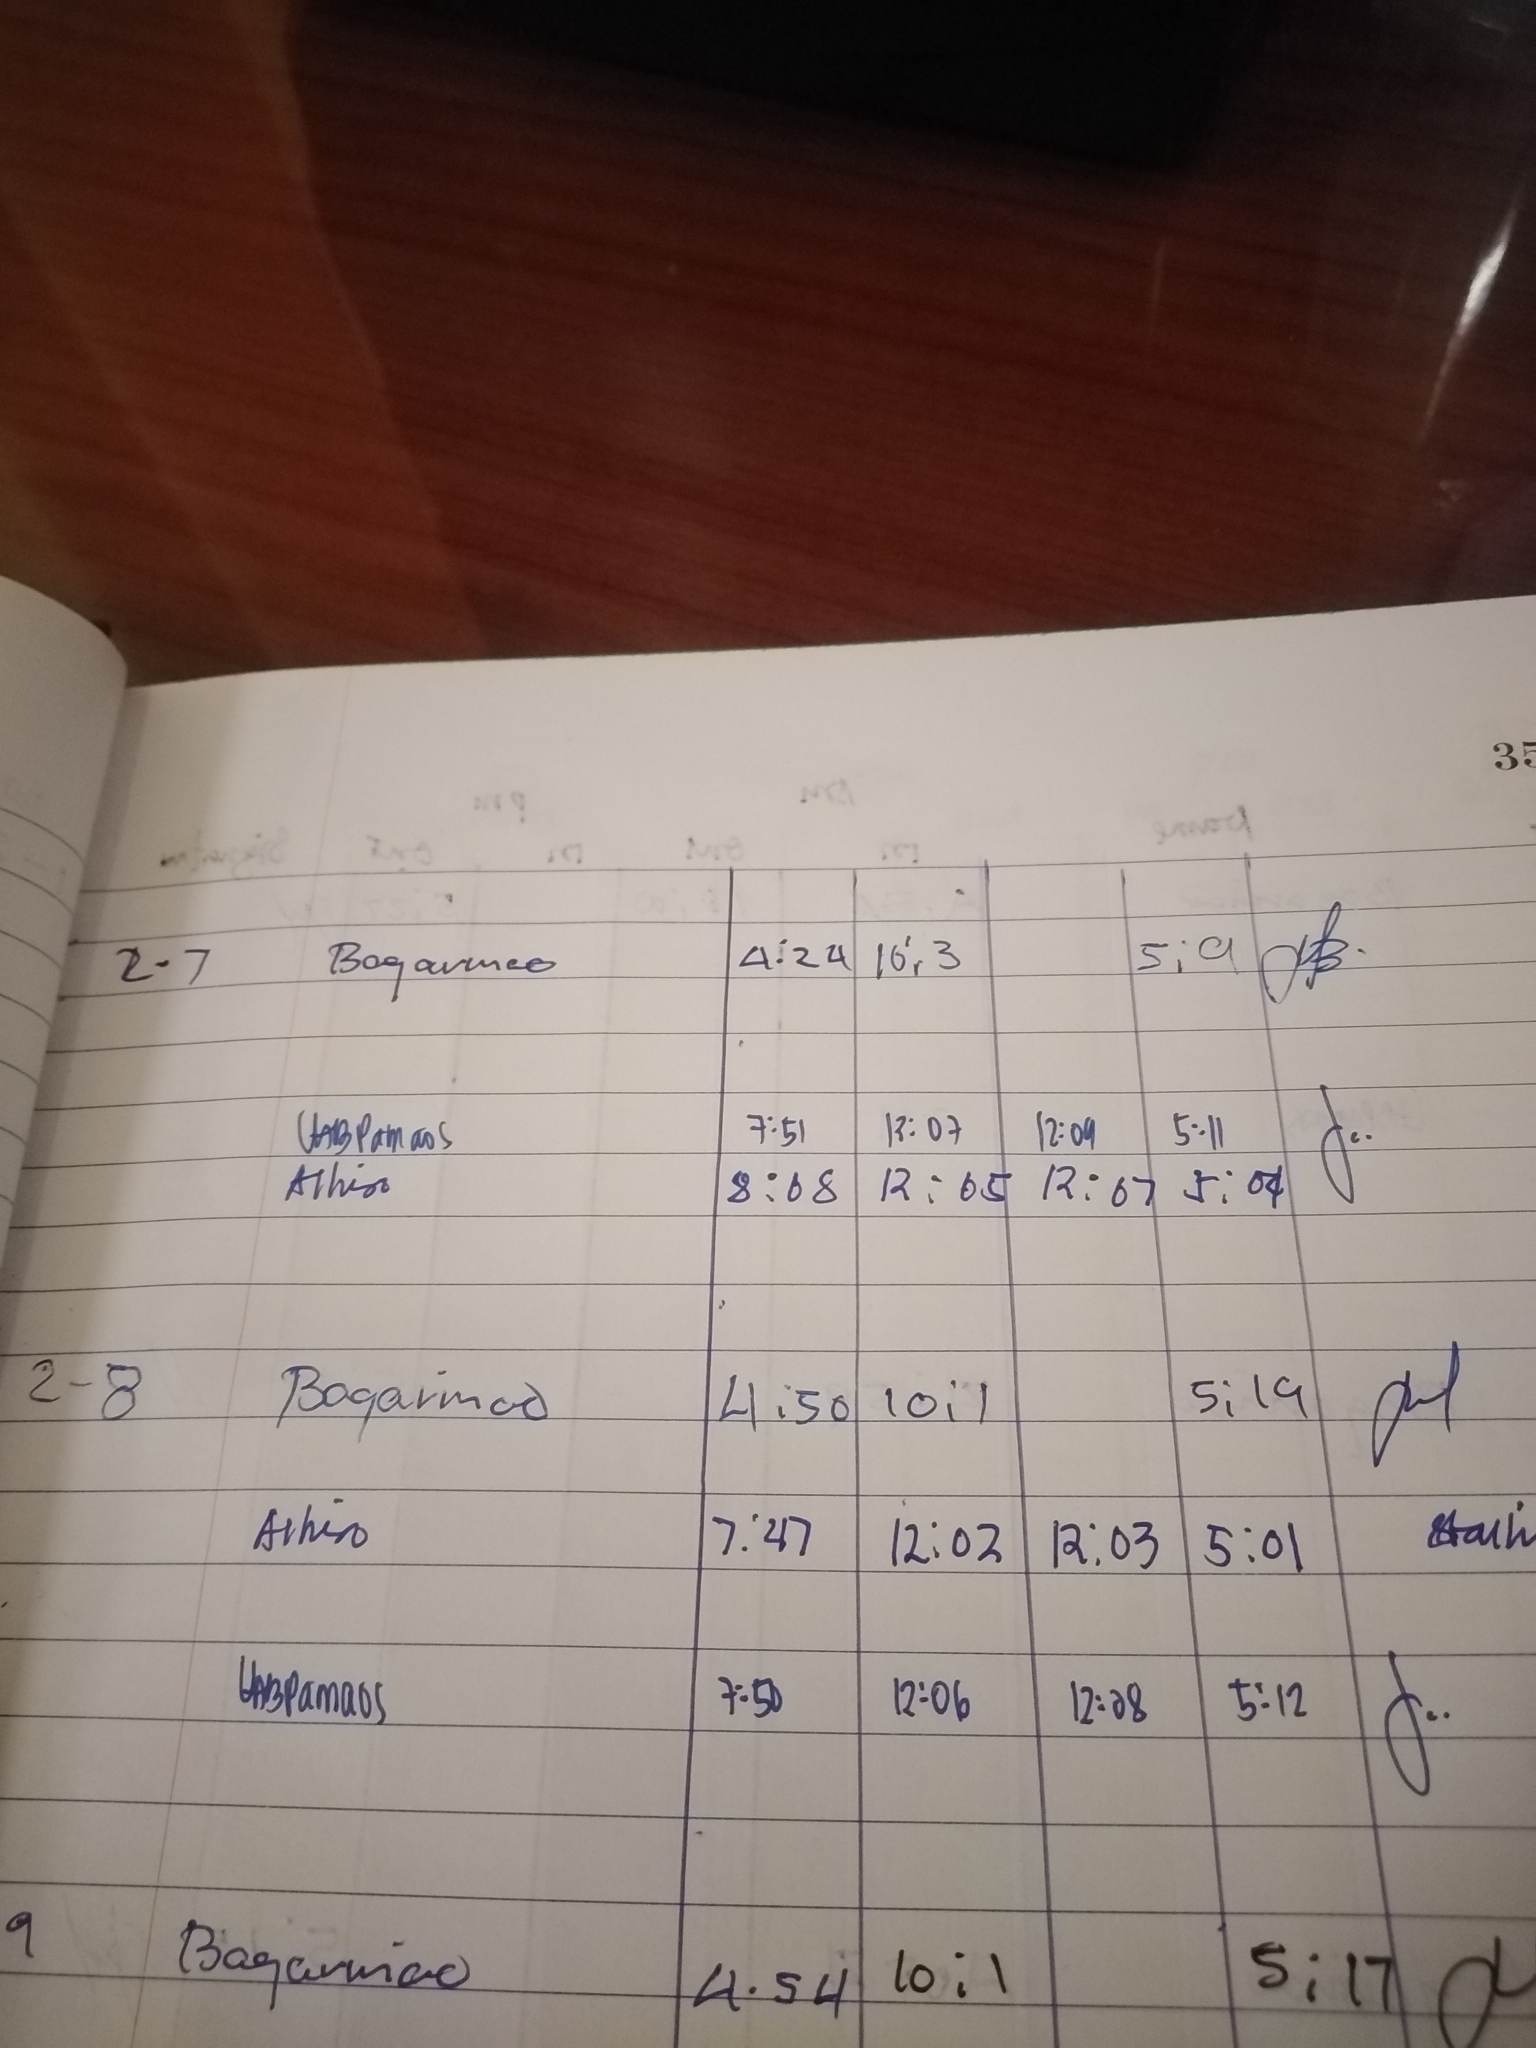 35
2-7 Bagarinao 4:24 10:3 5:9
UABPamaos 7:51 12:07 12:09 5:11
Athiso 8:08 12:05 12:07 5:04
2-8 Bagarinao 4:50 10:1 5:19
Athiso 7:47 12:02 12:03 5:01
UABPamaos 7:50 12:06 12:08 5:12
9 Bagarinao 4.54 10:1 5:17